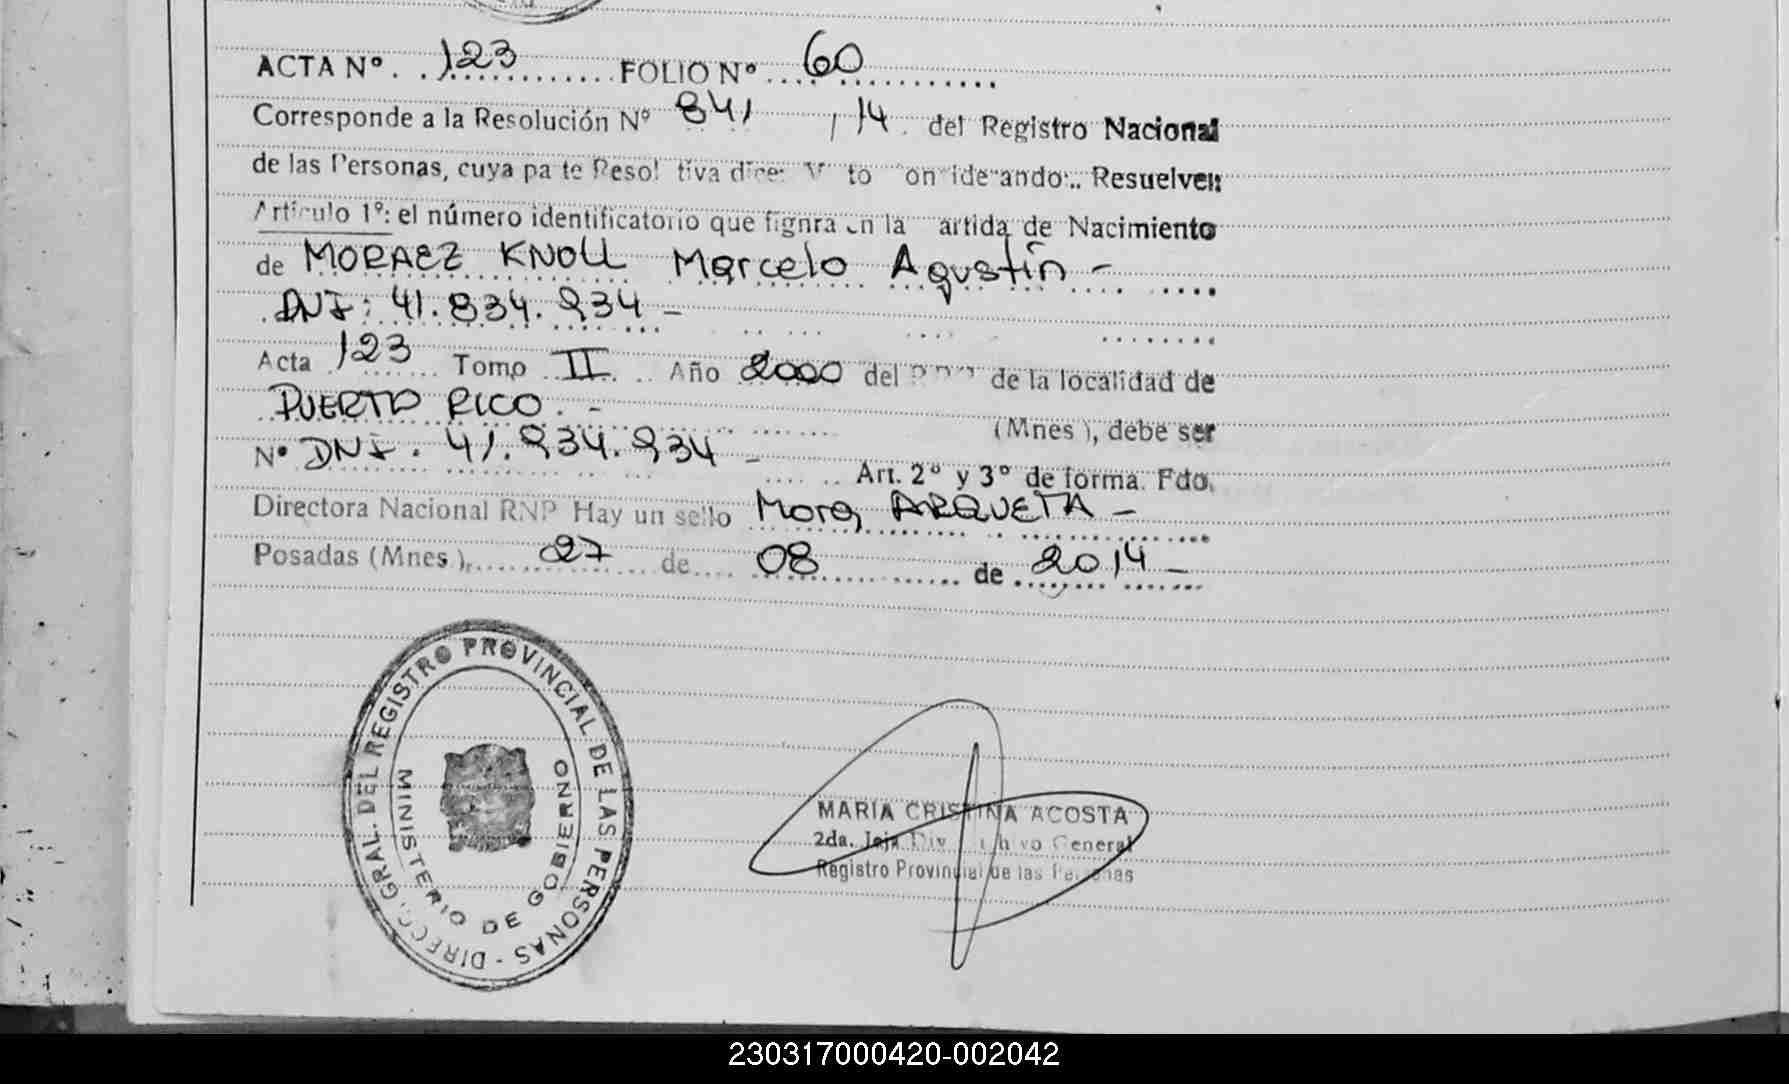 ACTA Nº. 123 FOLIO Nº 60
Corresponde a la Resolución Nº 841 / 14. del Registro Nacional
de las Personas, cuya pa te Resol tiva dice: V to on ide ando:.. Resuelven
Artículo 1º: el número identificatorio que figura en la artida de Nacimiento
de MORAEZ KNOLL Marcelo Agustín -
DNI: 41.834.934 -
Acta 123 Tomo II Año 2000 del de la localidad de
PUERTO RICO. -
(Mnes), debe ser
Nº DNI. 41.934.934 -
Art. 2º y 3º de forma. Fdo.
Directora Nacional RNP Hay un sello Mora ARQUETA -
Posadas (Mnes), 27 de 08 de 2014 -
DIRECC. GRAL. DEL REGISTRO PROVINCIAL DE LAS PERSONAS -
MINISTERIO DE GOBIERNO
MARIA CRISTINA ACOSTA
2da. Jefa Div General
Registro Provincial de las Personas
230317000420-002042